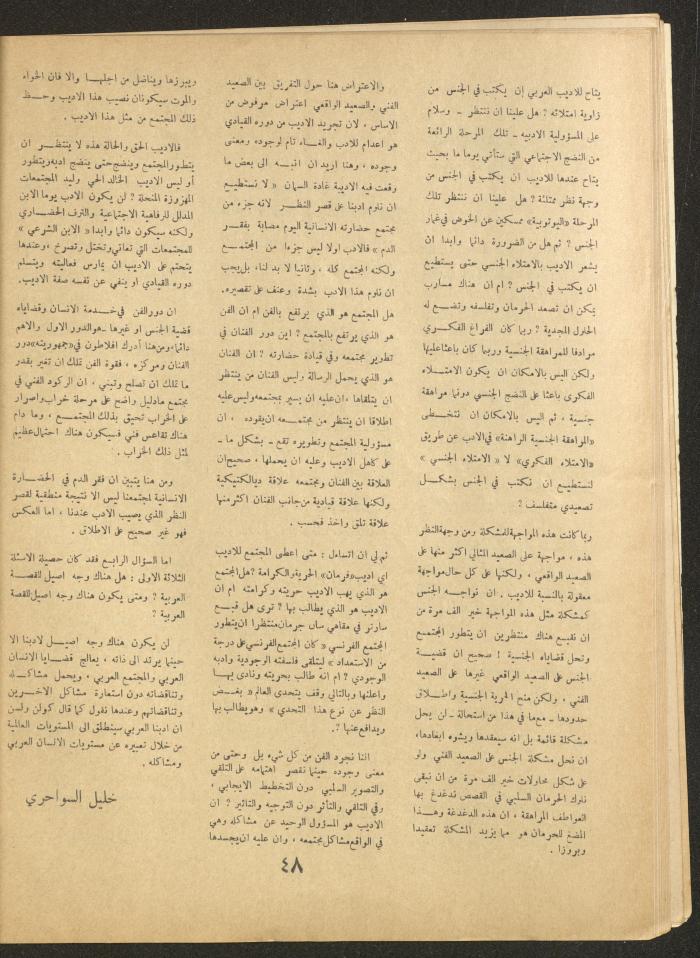 يتاح للاديب العربي ان يكتب في الجنس من
زاوية امتلائه ؟ هل علينا ان ننتظر – وسلام
على المسؤولية الادبيه – تلك المرحلة الرائعة
من النضج الاجتماعي التي ستأتي يوما ما بحيث
يتاح عندها للاديب ان يكتب في الجنس من
وجهة نظر ممتلئة ؟ هل علينا ان ننتظر تلك
المرحلة «اليوتوبية» ممسكين عن الخوض في غمار
الجنس ؟ ثم هل من الضرورة دائما وابدا ان
يشعر الاديب بالامتلاء الجنسي حتى يستطيع
ان يكتب في الجنس ؟ ام ان هناك مسارب
يمكن ان تصعد الحرمان وتفلسفه وتضع له
الحلول المجدية ؟ ربما كان الفراغ الفكري
مرادفا للمراهقة الجنسية وربما كان باعثا عليها
ولكن اليس بالامكان ان يكون الامتلاء
الفكرى باعثا على النضج الجنسي دونما مراهقة
جنسية ، ثم اليس بالامكان ان تتخطى
«المراهقة الجنسية الراهنة» في الادب عن طريق
«الامتلاء الفكري» لا « الامتلاء الجنسي »
لنستطيع ان نكتب في الجنس بشكل
تصعيدي متفلسف ؟
ربما كانت هذه المواجهة للمشكلة ومن وجهة النظر
هذه ، مواجهة على الصعيد المثالي اكثر منها على
الصعيد الواقعي ، ولكنها على كل حال مواجهة
معقولة بالنسبة للاديب . ان نواجه الجنس
كمشكلة مثل هذه المواجهة خير الف مرة من
ان نقبع هناك منتظرين ان يتطور المجتمع
ونحل قضاياه الجنسية ! صحيح ان قضية
الجنس على الصعيد الواقعي غيرها على الصعيد
الفني ، ولكن منح الحرية الجنسية واطلاق
حدودها – مع ما في هذا من استحالة – لن يحل
مشكلة قائمة بل انه سيعقدها ويشوه ابعادها،
ان نحل مشكلة الجنس على الصعيد الفني ولو
على شكل محاولات خير الف مرة من ان نبقى
نلوك الحرمان السلبي في القصص تدغدغ بها
العواطف المراهقة ، ان هذه الدغدغة وهذا
المضغ للحرمان هو مما يزيد المشكلة تعقيدا
وبروزا .
والاعتراض هنا حول التفريق بين الصعيد
الفني والصعيد الواقعي اعتراض مرفوض من
الاساس ، لان تجريد الاديب من دوره القيادي
هو اعدام للادب والغاء تام لوجوده، ومعنى
وجوده ، وهنا اريد ان انبه الى بعض ما
وقعت فيه الاديبة غادة السمان « لا نستطيع
ان نلوم ادبنا على قصر النظر لانه جزء من
مجتمع حضارته الانسانية اليوم مصابة بفقر
الدم » فالادب اولا ليس جزءا من المجتمع
ولكنه المجتمع كله ، وثانيا لا بد لنا، بل يجب
ان نلوم هذا الادب بشدة وعنف على تقصيره.
هل المجتمع هو الذي يرتفع بالفن ام ان الفن
هو الذي يرتفع بالمجتمع ؟ اين دور الفنان في
تطوير مجتمعه وفي قيادة حضارته ؟ ان الفنان
هو الذي يحمل الرسالة وليس الفنان من ينتظر
ان يتلقاها ، ان عليه ان يسير بمجتمعه وليس عليه
اطلاقا ان ينتظر من مجتمعه ان يقوده ، ان
مسؤولية المجتمع وتطويره تقع – بشكل ما –
على كاهل الاديب وعليه ان يحملها ، صحيح ان
العلاقة بين الفنان ومجتمعه علاقة ديالكتيكية
ولكنها علاقة قيادية من جانب الفنان اكثر منها
علاقة تلق واخذ فحسب .
ثم لي ان اتساءل : متى اعطى المجتمع للاديب
اي اديب «فرمان» الحرية والكرامة ؟ هل المجتمع
هو الذي يهب الاديب حريته وكرامته ام ان
الاديب هو الذي يطالب بها ؟ ترى هل قبع
سارتر في مقاهي سان جرمان منتظرا ان يتطور
المجتمع الفرنسي « كان المجتمع الفرنسي على درجة
من الاستعداد » ليتلقى فلسفته الوجودية وادبه
الوجودي ؟ ام انه طالب بحريته ونادى بها
واعلنها وبالتالي وقف يتحدى العالم « بغض
النظر عن نوع هذا التحدي » وهو يطالب بها
ويدافع عنها ؟.
اننا نجرد الفن من كل شيء بل وحتى من
معنى وجوده حينما نقصر اهتمامه على التلقي
والتصوير السلبي دون التخطيط الايجابي ،
وفي التلقي والتأثر دون التوجيه والتاثير ؟ ان
الاديب هو المسؤول الوحيد عن مشاكله وهي
في الواقع مشاكل مجتمعه ، وان عليه ان يجسدها
ويبرزها ويناضل من اجلها والا فان الخواء
والموت سيكونان نصيب هذا الاديب وحظ
ذلك المجتمع من مثل هذا الاديب .
فالاديب الحق والحالة هذه لا ينتظر ان
يتطور المجتمع وينضج حتى ينضج ادبه ويتطور
أو ليس الاديب الخالد الحي وليد المجتمعات
المهزوزة المنحلة ؟ لن يكون الادب يوما الابن
المدلل للرفاهية الاجتماعية والترف الحضاري
ولكنه سيكون دائما وابدا « الابن الشرعي »
للمجتمعات التي تعاني وتختل وتصرخ ، وعندها
يتحتم على الاديب ان يمارس فعاليته ويتسلم
دوره القيادي او ينفي عن نفسه صفة الاديب.
ان دور الفن في خدمة الانسان وقضاياه
قضية الجنس او غيرها – هو الدور الاول والاهم
دائما، ومن هنا أدرك افلاطون في «جمهوريته» دور
الفنان ومركزه ، فقوة الفن تلك ان تغير بقدر
ما تملك ان تصلح وتبني ، ان الركود الفني في
مجتمع ما دليل واضح على مرحلة خراب واصرار
على الخراب تحيق بذلك المجتمع ، وما دام
هناك تقاعس فني فسيكون هناك احتمال عظيم
لمثل ذلك الخراب .
ومن هنا يتبين ان فقر الدم في الحضارة
الانسانية لمجتمعنا ليس الا نتيجة منطقية لقصر
النظر الذي يصيب الادب عندنا ، اما العكس
فهو غير صحيح على الاطلاق .
اما السؤال الرابع فقد كان حصيلة الاسئلة
الثلاثة الاولى : هل هناك وجه اصيل للقصة
العربية ؟ ومتى يكون هناك وجه اصيل للقصة
العربية ؟
لن يكون هناك وجه اصيل لادبنا الا
حينما يرتد الى ذاته ، يعالج قضايا الانسان
العربي والمجتمع العربي ، ويحمل مشاكله
وتناقضاته دون استعارة مشاكل الاخرين
وتناقضاتهم وعندها نقول كما قال كولن ولسن
ان ادبنا العربي سينطلق الى المستويات العالمية
من خلال تعبيره عن مستويات الانسان العربي
ومشاكله .
خليل السواحري
٤٨